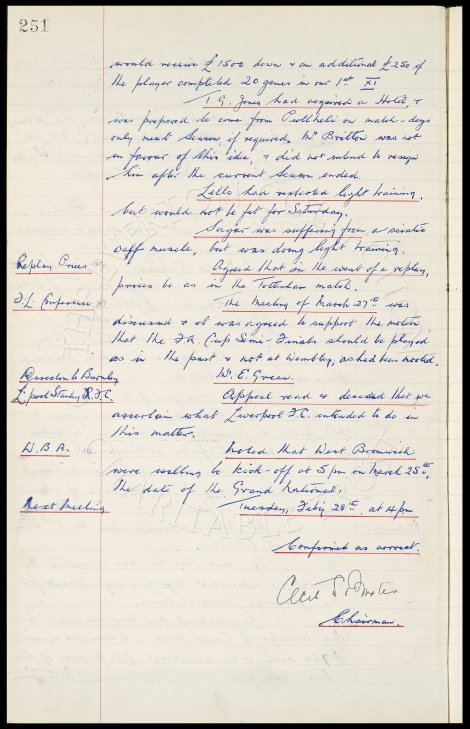 251
would receive £1500 down & an additional £250 if
the player completed 20 games in our 1st XI
T. G. Jones had acquired a Hotel, &
was prepared to come from Pwllheli on match-days
only next Season if required. Mr Britton was not
in favour of this idea, & did not intend to resign
him after the current Season ended.
Lello had restarted light training,
but would not be fit for Saturday.
Sagar was suffering from a sciatic
calf muscle, but was doing light training.
Replay Prices Agreed that in the event of a replay,
prices be as in the Tottenham match.
F.L. Conference The Meeting of March 27th was
discussed & it was agreed to support the motion
that the F.A. Cup Semi-Finals should be played
as in the past & not at Wembley, as had been mooted.
Direction to Burnley Mr. E. Green.
L'pool Stanley R.F.C. Appeal read & decided that we
ascertain what Liverpool F.C. intended to do in
this matter.
W.B.A. Noted that West Bromwich
were willing to kick-off at 5 pm on March 25th,
the date of the Grand National.
Next Meeting Tuesday, Feb'y 28th. at 4 pm
Confirmed as correct.
Cecil S.
Chairman.